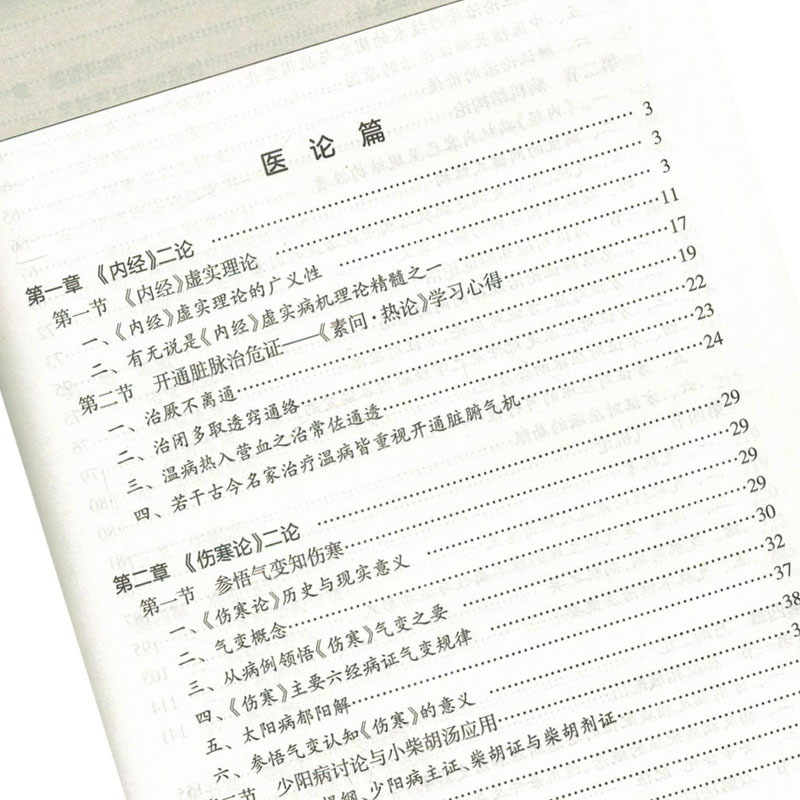 医论篇
第一章 《内经》二论 3
第一节 《内经》虚实理论 3
一、《内经》虚实理论的广义性 3
二、有无说是《内经》虚实病机理论精髓之一 11
第二节 开通脏脉治危证——《素问·热论》学习心得 17
一、治厥不离通 19
二、治闭多取透窍通络 22
三、温病热入营血之治常佐通透 23
四、若干古今名家治疗温病皆重视开通脏腑气机 24
第二章 《伤寒论》二论 29
第一节 参悟气变知伤寒 29
一、《伤寒论》历史与现实意义 29
二、气变概念 29
三、从病例领悟《伤寒》气变之要 30
四、《伤寒》主要六经病证气变规律 32
五、太阳病郁阳解 37
六、参悟气变认知《伤寒》的意义 38
二节 少阳病讨论与小柴胡汤应用
提纲、少阳病主证、柴胡证与柴胡剂证